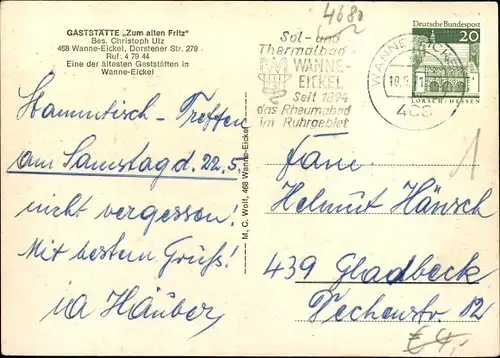 GASTSTÄTTE „Zum alten Fritz"
Bes. Christoph Utz
468 Wanne-Eickel, Dorstener Str. 279
Ruf: 4 79 44
Eine der ältesten Gaststätten in
Wanne-Eickel
4680
Sol- und
Thermalbad
WANNE-
EICKEL
Seit 1894
das Rheumabad
im Ruhrgebiet
WANNE-EICKEL
18.5.
468
Deutsche Bundespost
20
LORSCH/HESSEN
Stammtisch-Treffen
am Samstag d. 22.5.
nicht vergessen!
Mit bestem Gruß!
M. C. Wolf, 468 Wanne-Eickel
Fam.
Helmut Hänsch
439 Gladbeck
Pechenstr. 12
€ 4,-
1